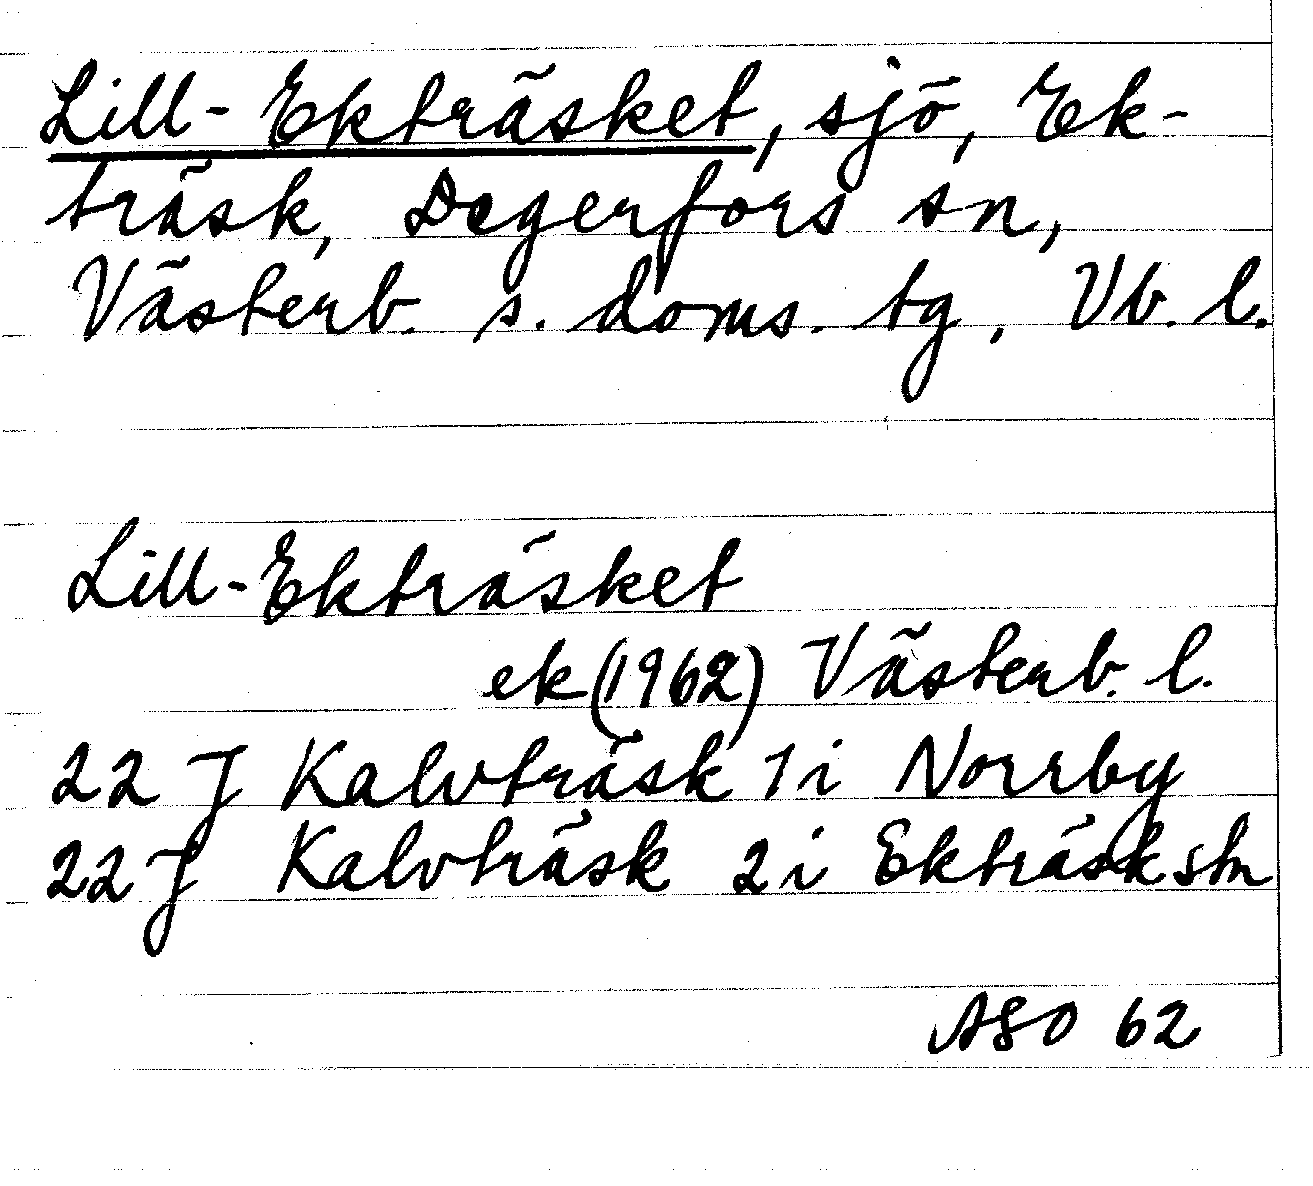 Lill-Ekträsket, sjö, Ek-
träsk, Degerfors sn,
Västerb. s. doms. tg, Vb. l.
Lill-Ekträsket
ek (1962) Västerb. l.
22 J Kalvträsk 1 i Norrby
22 J Kalvträsk 2 i Ekträsk stn
ASO 62